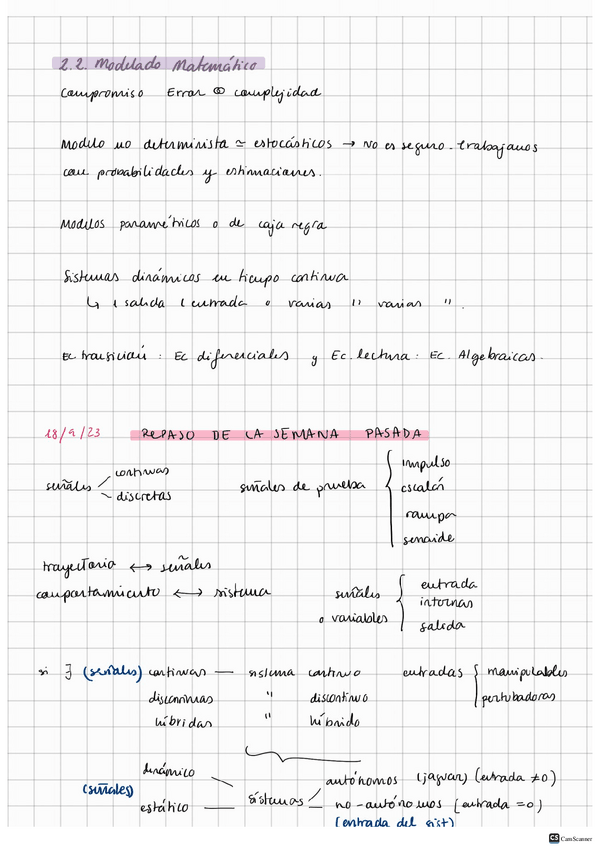 2.2. Modelado Matemático
Compromiso Error ↔ complejidad
Modelo no determinista ≃ estocásticos → No es seguro. trabajamos
con probabilidades y estimaciones.
Modelos paramétricos o de caja negra
Sistemas dinámicos en tiempo continuo
↳ 1 salida 1 entrada o varias " varias ".
Ec transición : Ec diferenciales y Ec. lectura : Ec. Algebraicas.
18/9/23 REPASO DE LA SEMANA PASADA
señales continuas
discretas
señales de prueba impulso
escalón
rampa
senoide
trayectoria ↔ señales
comportamiento ↔ sistema
señales o variables entrada
internas
salida
si ∃ (señales) continuas — sistema continuo
discontinuas " discontinuo
híbridas " híbrido
entradas manipulables
pertubadoras
(señales) dinámico
estático — sistemas
autónomos (jaguar) (entrada ≠0)
no-autónomos (entrada =0)
(entrada del sist)
CS CamScanner